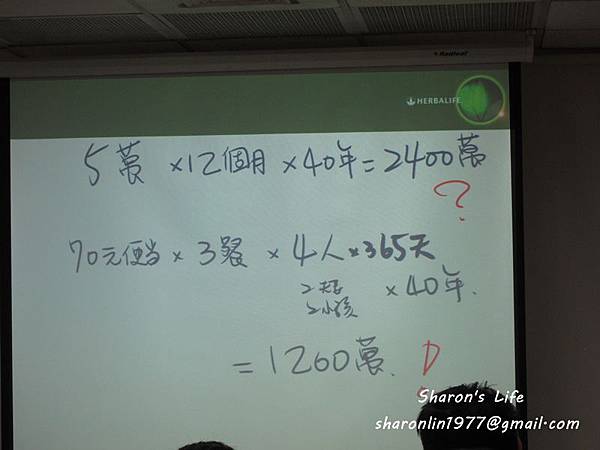 HERBALIFE
5萬 ×12個月 ×40年=2400萬
?
70元便当 × 3餐 × 4人×365天
2小孩 ×40年.
=1200萬.
Sharon's Life
sharonlin1977@gmail.com